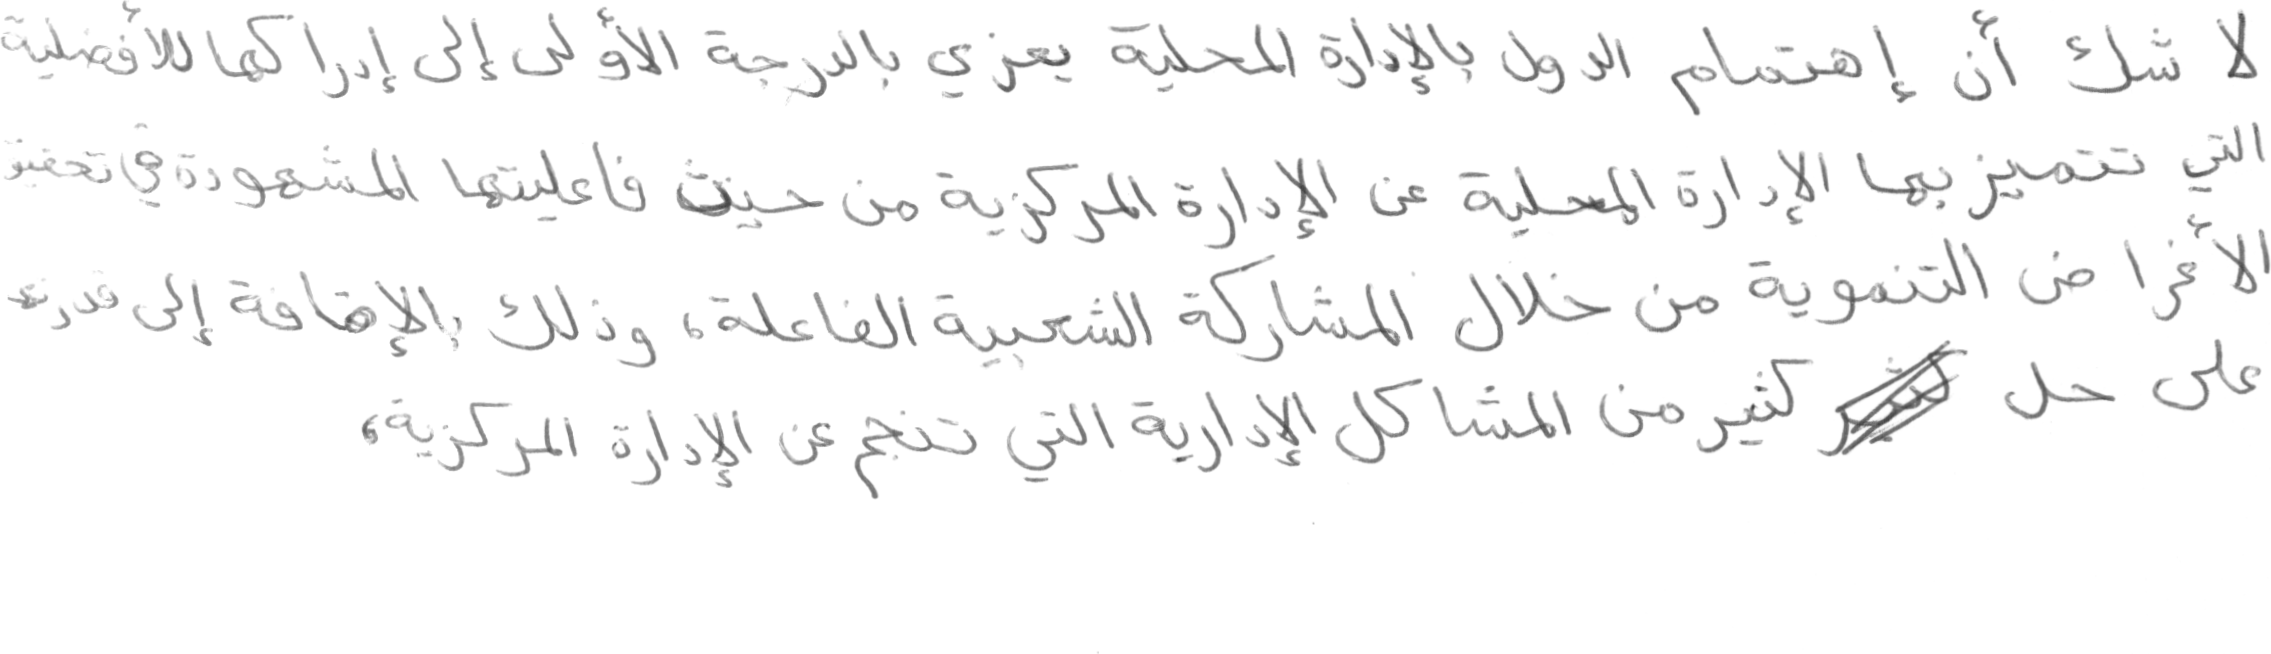 لا شك أن إهتمام الدول بالإدارة المحلية يعزي بالدرجة الأولى إلى إدراكها للأفضلية
التي تتميز بها الإدارة المحلية عن الإدارة المركزية من حيث فاعليتها المشهودة في تحقيق
الأغراض التنموية من خلال المشاركة الشعبية الفاعلة، وذلك بالإضافة إلى
على حل كثير من المشاكل الإدارية التي تنجم عن الإدارة المركزية،